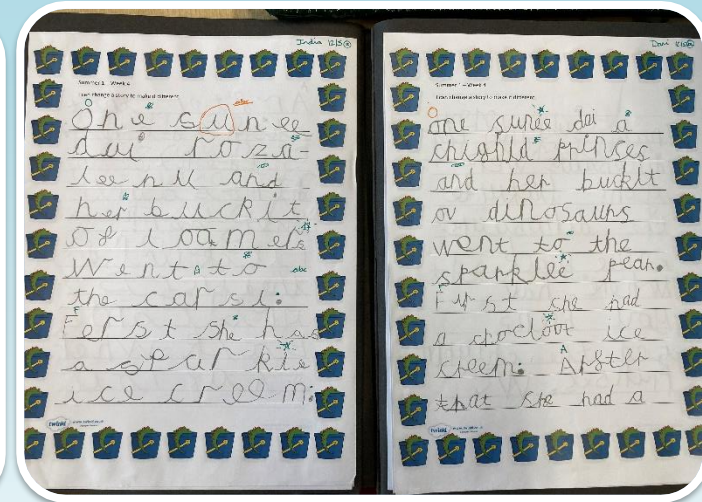 India 12/5
Summer 1 - Week 4
I can change a story to make it different
One sunee
dai roza-
leenu and
her buckit
of
Went to
the carsl.
Ferst she had
a sparkle
ice creem.
twinkl
Davi
Summer 1 - Week 4
I can change a story to make it different
one sunee dai a
chighld prinses
and her buckit
ov dinosaurs
went to the
sparklee pear.
Furst she had
a choclout ice
creem. Arster
that she had a
twinkl